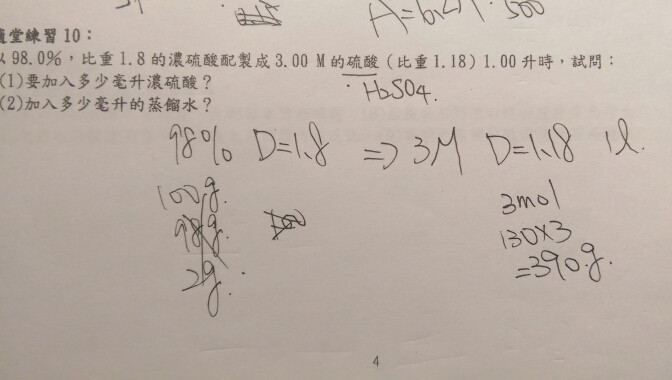 A=6.2M · 500
隨堂練習 10：
以 98.0%，比重 1.8 的濃硫酸配製成 3.00 M 的硫酸（比重 1.18）1.00 升時，試問：
(1)要加入多少毫升濃硫酸？
H2SO4.
(2)加入多少毫升的蒸餾水？
98% D=1.8 => 3M D=1.18 1l.
100g.
3mol
98g.
130×3
2g.
=390g.
4